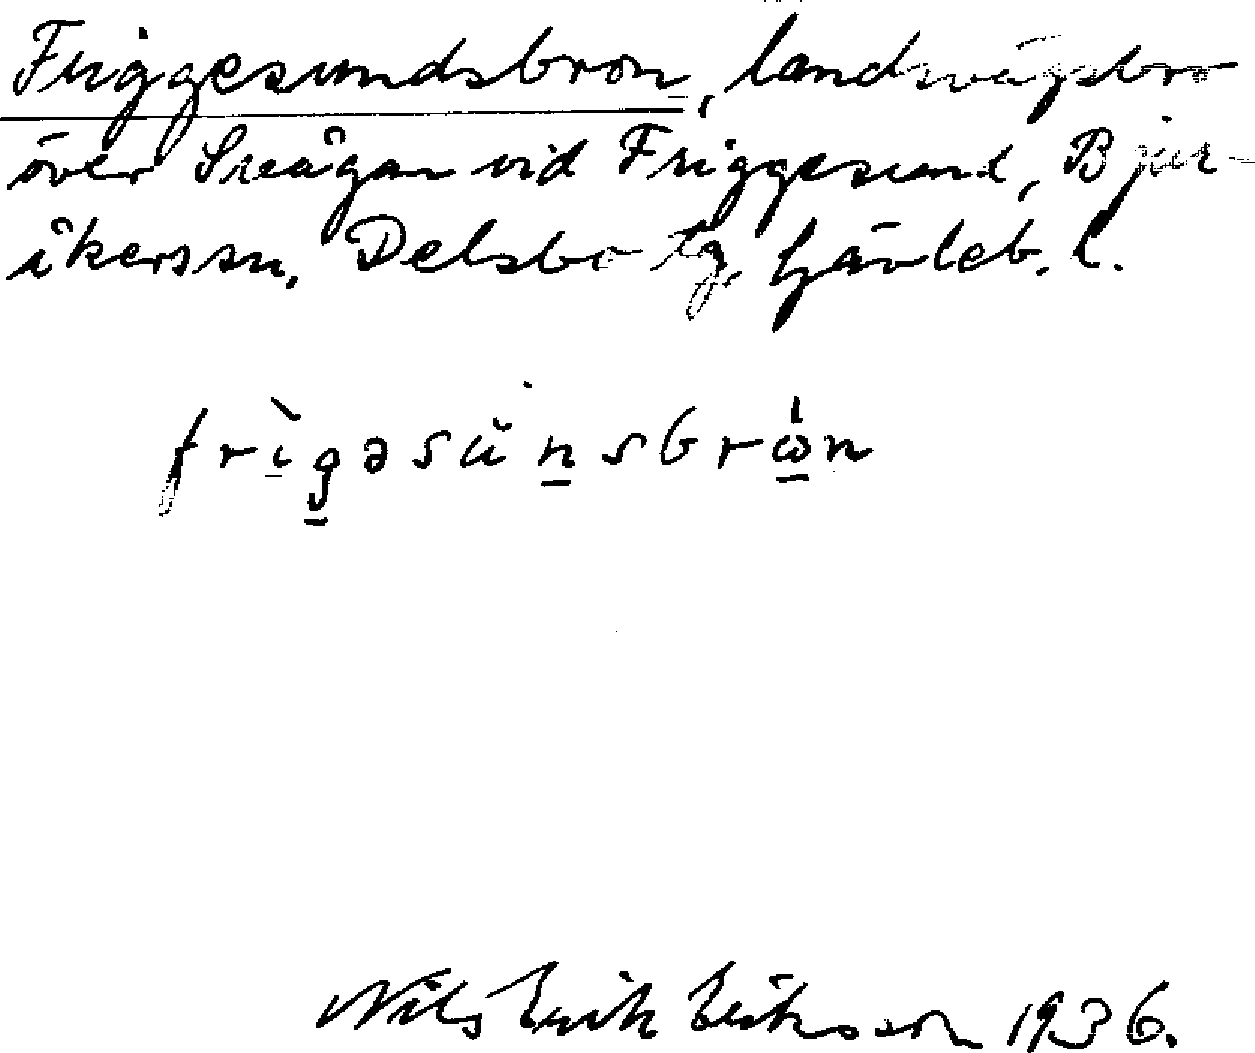 Friggesundsbron, landsvägsbro
över Sveågan vid Friggesund, Bjur-
åkerssn, Delsbo tg, Gävleb. l.
frìgəsŭnsbrω̍n
Nils Erik Eriksson 1936.